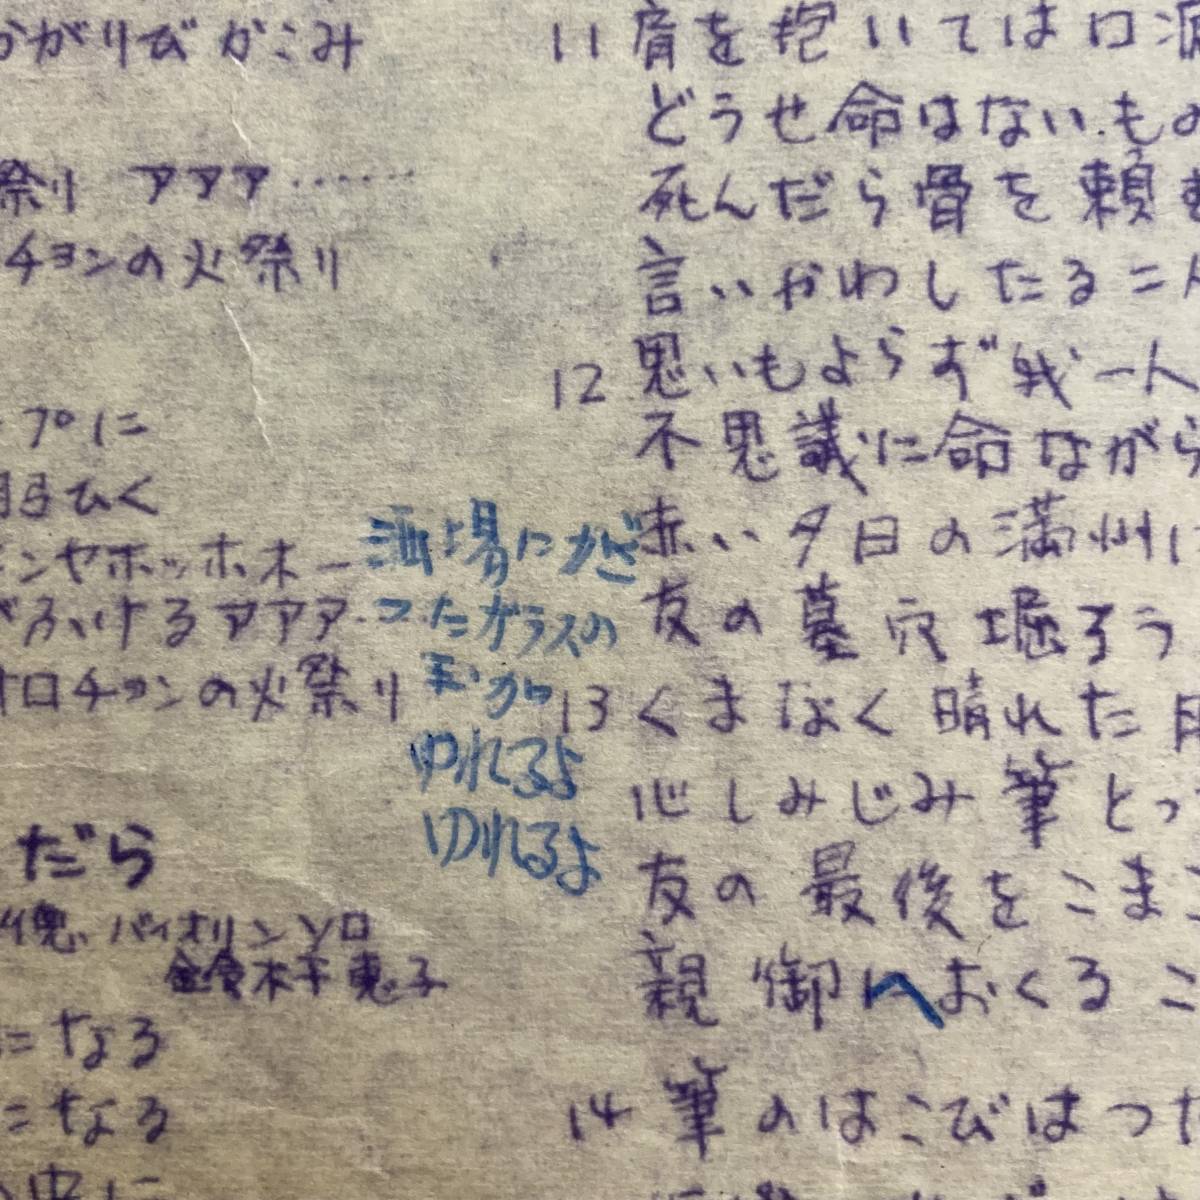 かがりびがこみ
祭り アアア……
チヨンの火祭り
プに
弱ひく
ンヤホッホホー
がふけるアアア
オロチョンの火祭り
だら
バイオリンソロ
鈴木千恵子
になる
になる
中に
酒場にかざ
ったガラスの
玉が
ゆれるよ
ゆれるよ
11 肩を抱いては口
どうせ命はないもの
死んだら骨を頼む
言いかわしたる二人
12 思いもよらず我一人
不思議に命ながら
赤い夕日の満州に
友の墓穴堀ろう
13 くまなく晴れた月
心しみじみ筆とっ
友の最後をこまご
親御へおくるこ
14 筆のはこびはつた